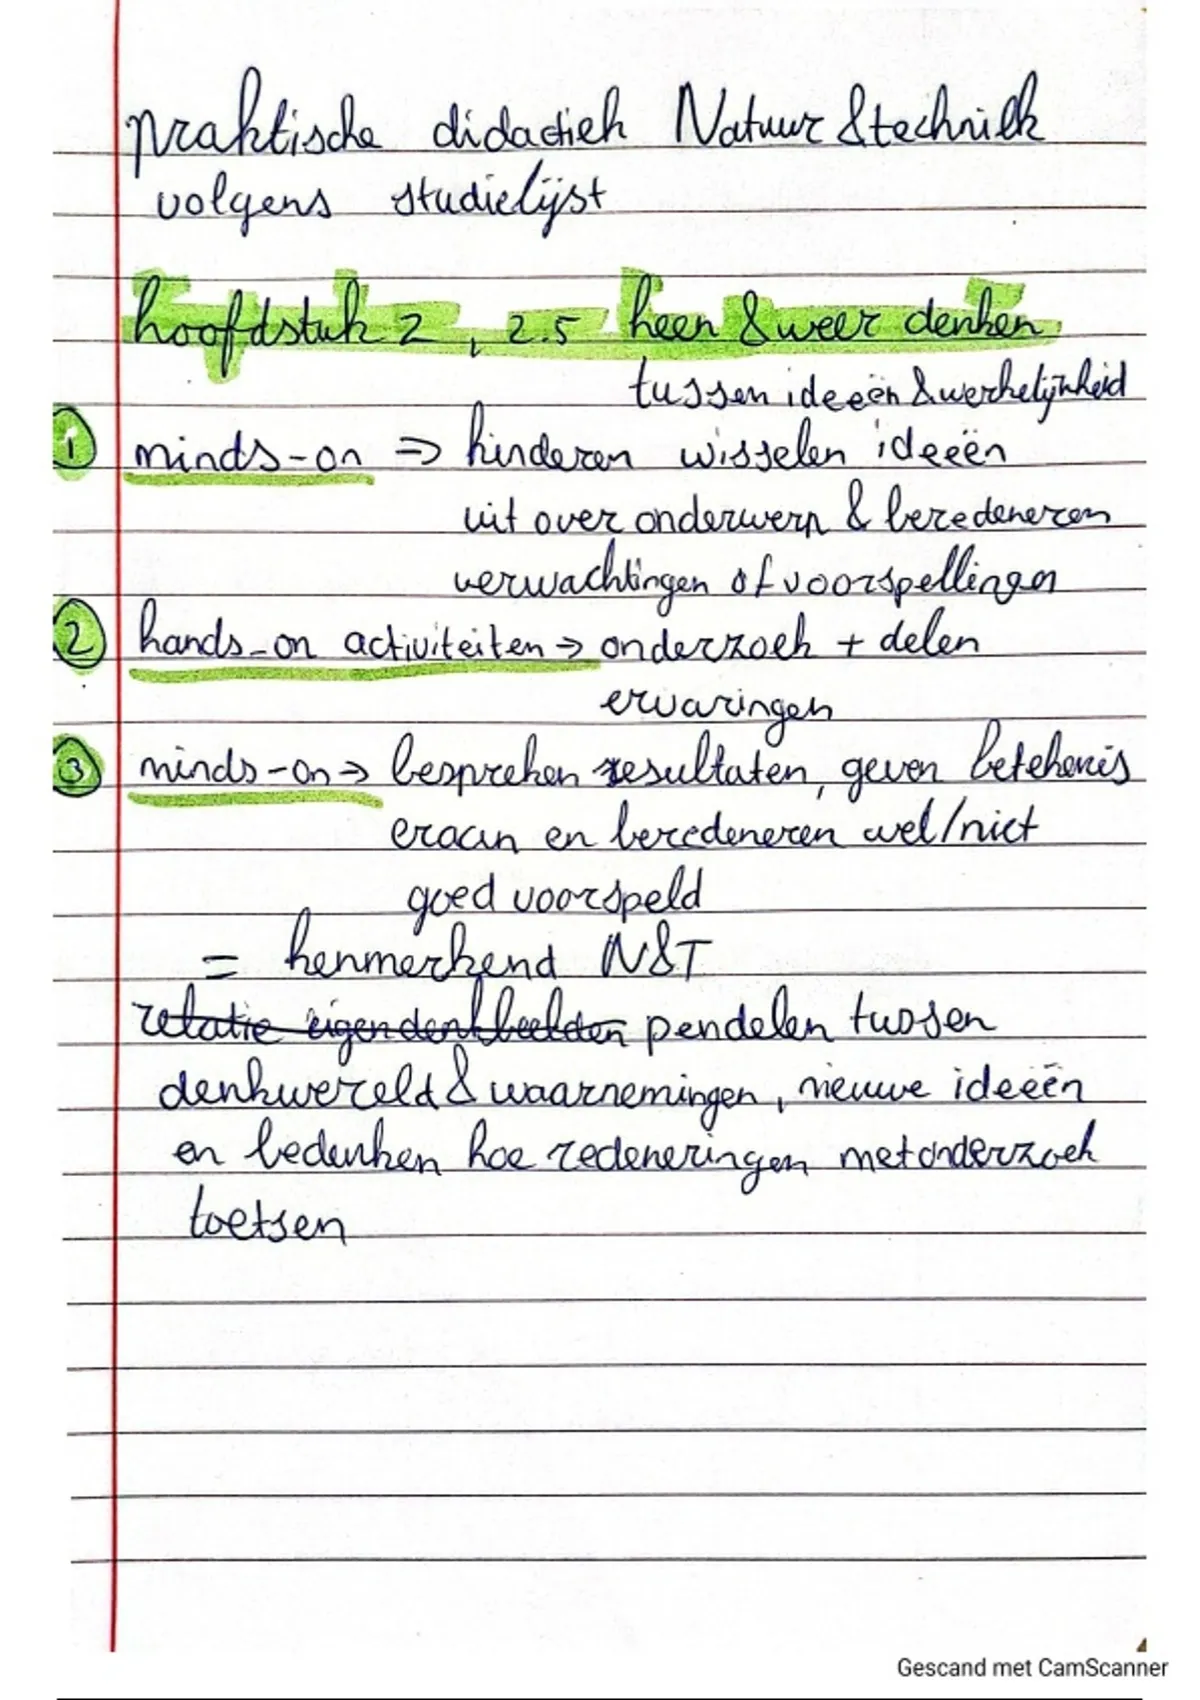 praktische didactiek Natuur & techniek
volgens studielijst
hoofdstuk 2, 2.5 heen & weer denken
tussen ideeën & werkelijkheid
1 minds-on ⇒ kinderen wisselen ideeën
uit over onderwerp & beredeneren
verwachtingen of voorspellingen
2 hands-on activiteiten → onderzoek + delen
ervaringen
3 minds-on → bespreken resultaten, geven betekenis
eraan en beredeneren wel/niet
goed voorspeld
= kenmerkend N&T
relatie eigen denkbeelden pendelen tussen
denkwereld & waarnemingen, nieuwe ideeën
en bedenken hoe redeneringen met onderzoek
toetsen
Gescand met CamScanner